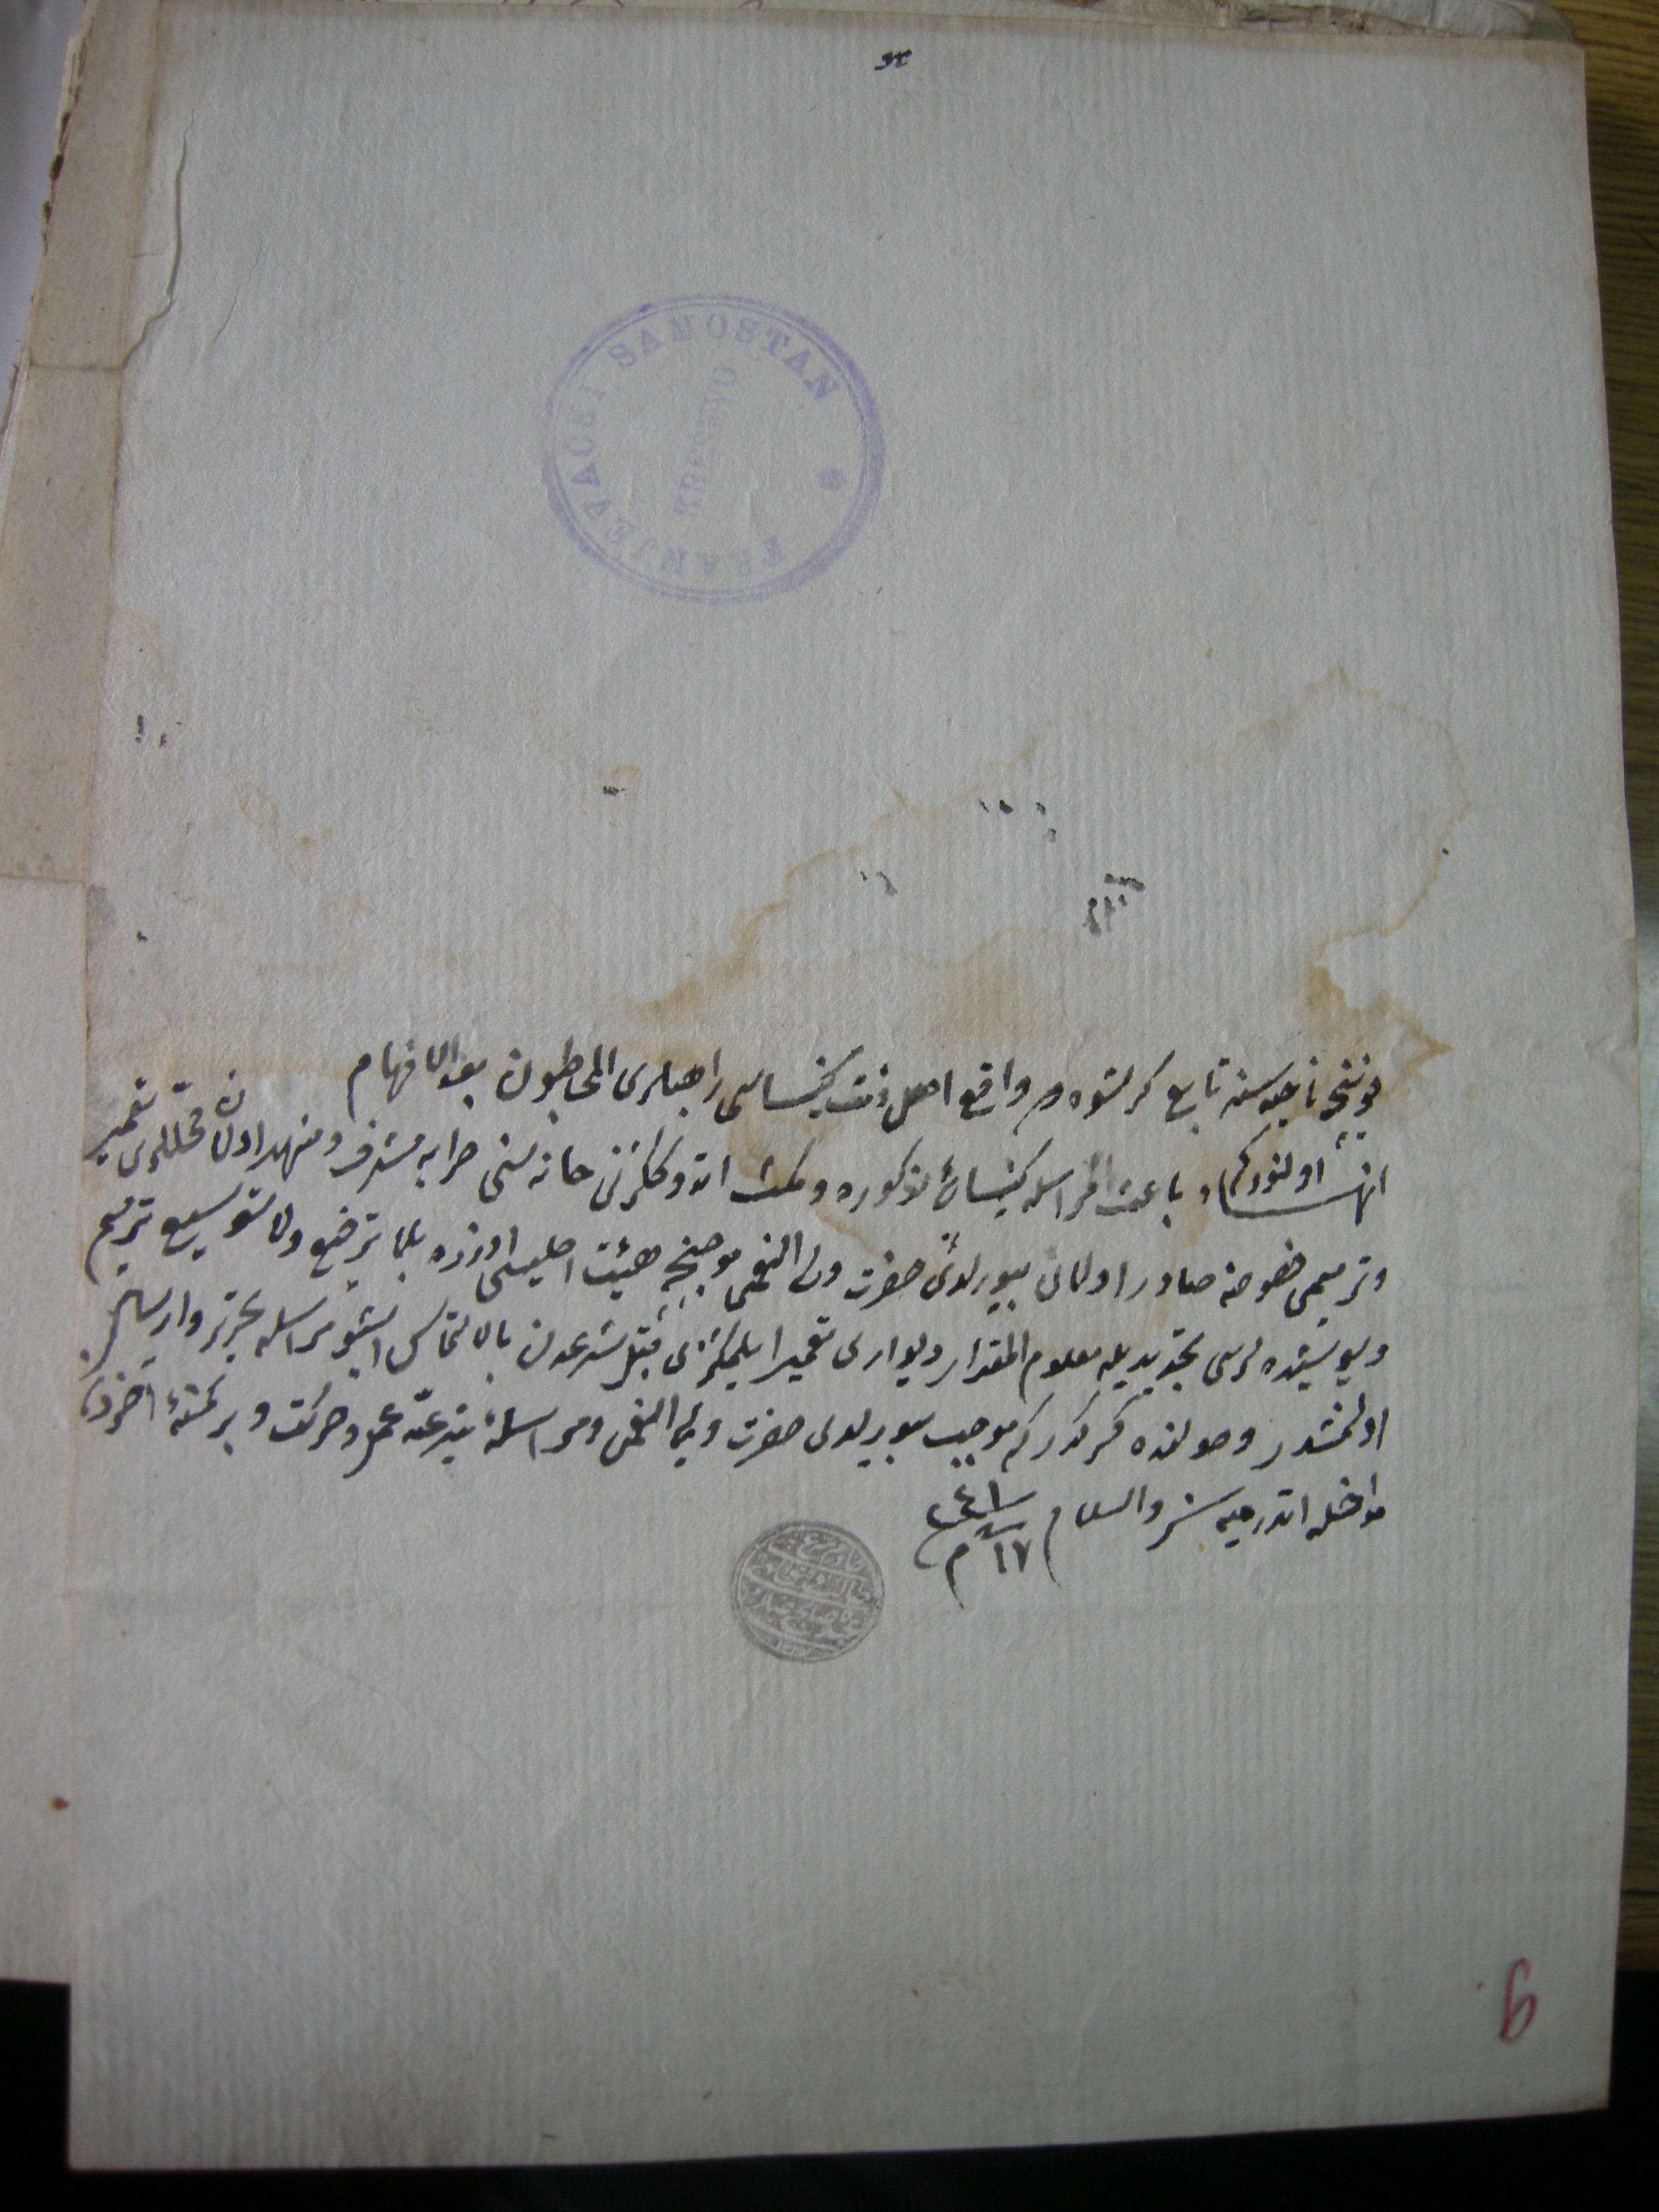 هو
FRANJEVAČKI SAMOSTAN
KREŠEVO
فوینیچه ناحیه سنه تابع کرشوه ده واقع اهل ذمت کنیساسی راهبلری المخاطبون بعد الافهام
انها اولنور که باعث المراسله کنیسهٔ مذکوره و مکث ایتدوکلرینی خانه سنی خرابه مشرف و منهدم اولان محللرینی تعمیر
و ترمیمی خصوصنه صادر اولان بیورلدیٔ حضرت ولی النعمی موجبنجه هیئت اصلیسی اوزره بلا ترفیع ولا توسیع ترمیم
و پوشیده لرینی تجدیدیله معلوم المقدار دیواری تعمیر ایلمکلری قبل شرعدن بالالتماس اشبو مراسله تحریر و ارسال
اولنمشدر وصولنده کرکدر که موجب بیورلدی حضرت ولی النعمی و مراسلهٔ شرعیه عمل و حرکت و بر کمسنهٔ آخردن
مداخله ایتدرمیه سز والسلام
١٧ م ٢٤١
9